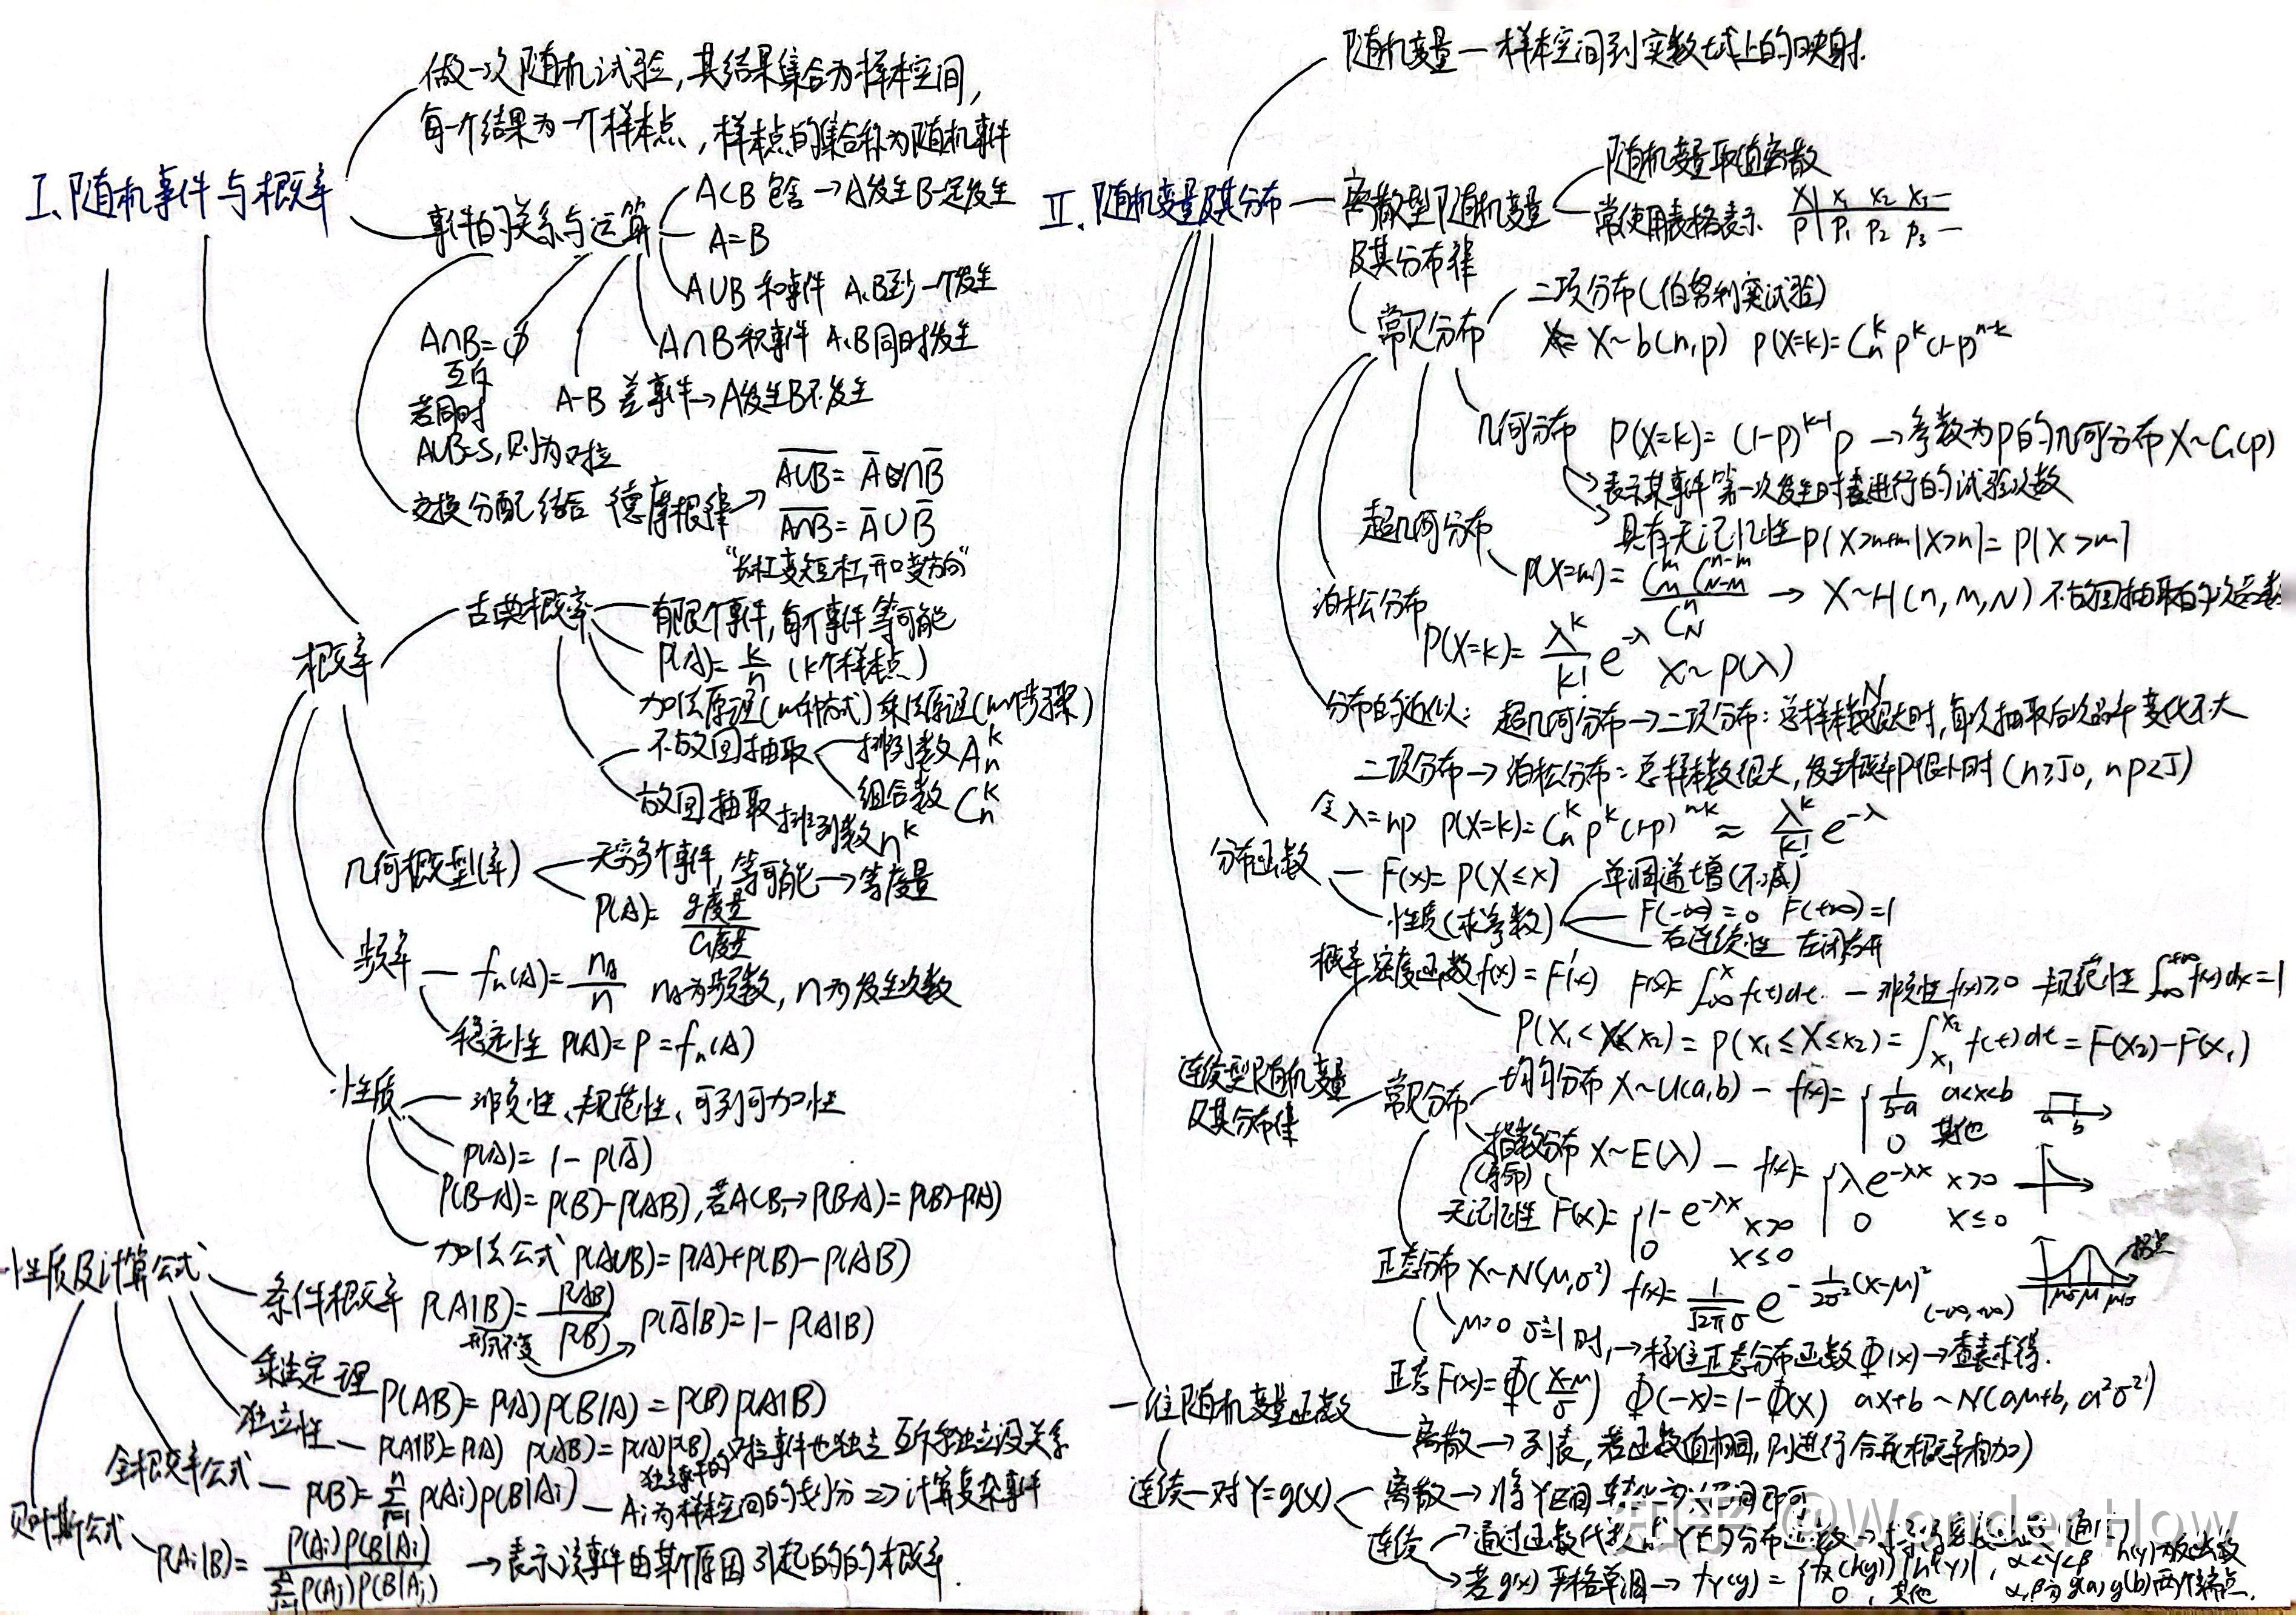 I、随机事件与概率
做一次随机试验,其结果集合为样本空间,
每一个结果为一个样本点,样本点的集合称为随机事件
事件的关系与运算
A⊂B 包含 → A发生B一定发生
A=B
A∪B 和事件 A、B至少一个发生
A∩B 积事件 A、B同时发生
A-B 差事件 → A发生B不发生
A∩B=∅
互斥
若同时
A∪B=S,则为对立
交换 分配 结合 德摩根律 →
\overline{A∪B} = \overline{A}∩\overline{B}
\overline{A∩B} = \overline{A}∪\overline{B}
"长杠变短杠,开口变方向"
概率
古典概率
有限个事件,每个事件等可能
P(A)=\frac{k}{n} (k个样本点)
加法原理(m种方式) 乘法原理(m个步骤)
不放回抽取
排列数 A_n^k
组合数 C_n^k
放回抽取 排列数 n^k
几何概型(率)
无穷多个事件,等可能 → 等度量
P(A)= \frac{g度量}{G度量}
频率
f_n(A)=\frac{n_A}{n} n_A为频数, n为发生次数
稳定性 P(A)=P=f_n(A)
性质
非负性、规范性、可列可加性
P(A)=1-P(\overline{A})
P(B-A)=P(B)-P(AB),若A⊂B,→P(B-A)=P(B)-P(A)
加法公式 P(A∪B)=P(A)+P(B)-P(AB)
性质及计算公式
条件概率 P(A|B)=\frac{P(AB)}{P(B)} P(\overline{A}|B)=1-P(A|B)
形式不变
乘法定理 P(AB)=P(A)P(B|A)=P(B)P(A|B)
独立性 P(A|B)=P(A) P(AB)=P(A)P(B) 独立事件的对立事件也独立 互斥和独立没关系
全概率公式 P(B)=\sum_{i=1}^{n}P(A_i)P(B|A_i) — A_i为样本空间的划分 ⇒ 计算复杂事件
贝叶斯公式 P(A_i|B)=\frac{P(A_i)P(B|A_i)}{\sum P(A_j)P(B|A_j)} → 表示该事件由某个原因引起的的概率.
II. 随机变量及其分布
随机变量 — 样本空间到实数域上的映射.
离散型随机变量
及其分布律
随机变量取值离散
常使用表格表示
X | x_1 x_2 x_3 —
P | P_1 P_2 P_3 —
常见分布
二项分布(伯努利实试验)
X~b(n,p) P(X=k)=C_n^k p^k (1-p)^{n-k}
几何分布 P(X=k)=(1-p)^{k-1}p → 参数为P的几何分布 X~G(p)
表示某事件第一次发生时进行的试验次数
具有无记忆性 P{X>n+m|X>n}=P{X>m}
超几何分布
P(X=m)=\frac{C_M^m C_{N-M}^{n-m}}{C_N^n} → X~H(n,M,N) 不放回抽取的次品数
泊松分布
P(X=k)=\frac{λ^k}{k!}e^{-λ} X~P(λ)
分布的近似: 超几何分布→二项分布: 总样本数N很大时,每次抽取后次品率变化不大
二项分布→泊松分布: 总样本数很大,发生概率P很小时 (n≥50, np≥5)
令λ=np P(X=k)=C_n^k p^k(1-p)^{n-k} ≈ \frac{λ^k}{k!}e^{-λ}
分布函数
F(x)=P(X≤x)
性质(求参数)
单调递增(不减)
F(-∞)=0 F(+∞)=1
右连续性 左闭右开
连续型随机变量
及其分布律
概率密度函数 f(x)=F'(x) F(x)=∫_{-∞}^x f(t)dt. — 非负性 f(x)≥0 — 规范性 ∫_{-∞}^{+∞} f(x)dx=1
P(x_1<X≤x_2)=P(x_1≤X≤x_2)=∫_{x_1}^{x_2} f(t)dt=F(x_2)-F(x_1)
常见分布
均匀分布 X~U(a,b) — f(x)={\frac{1}{b-a} a<x<b
0 其他
a b
指数分布 X~E(λ) — f(x)={λe^{-λx} x>0
0 x≤0
(寿命)
无记忆性 F(x)={1-e^{-λx} x>0
0 x≤0
正态分布 X~N(μ,σ²) f(x)=\frac{1}{\sqrt{2π}σ}e^{-\frac{1}{2σ²}(x-μ)²} (-∞,+∞)
拐点
μ-σ μ μ+σ
μ=0 σ²=1时,→标准正态分布函数Φ(x)→查表求得.
正态 F(x)=Φ(\frac{x-μ}{σ}) Φ(-x)=1-Φ(x) aX+b~N(aμ+b, a²σ²)
一维随机变量函数
离散→列表,若函数值相同,则进行合并(概率相加)
连续一对Y=g(X)
离散→将Y区间转化为X区间即可
连续
通过函数代换求Y的分布函数→
若g(x)严格单调→ f_Y(y)={f_X(h(y))|h'(y)|, α<y<β h(y)为反函数
0, 其他 α,β为g(a) g(b)两个端点.
知乎 @WonderHow